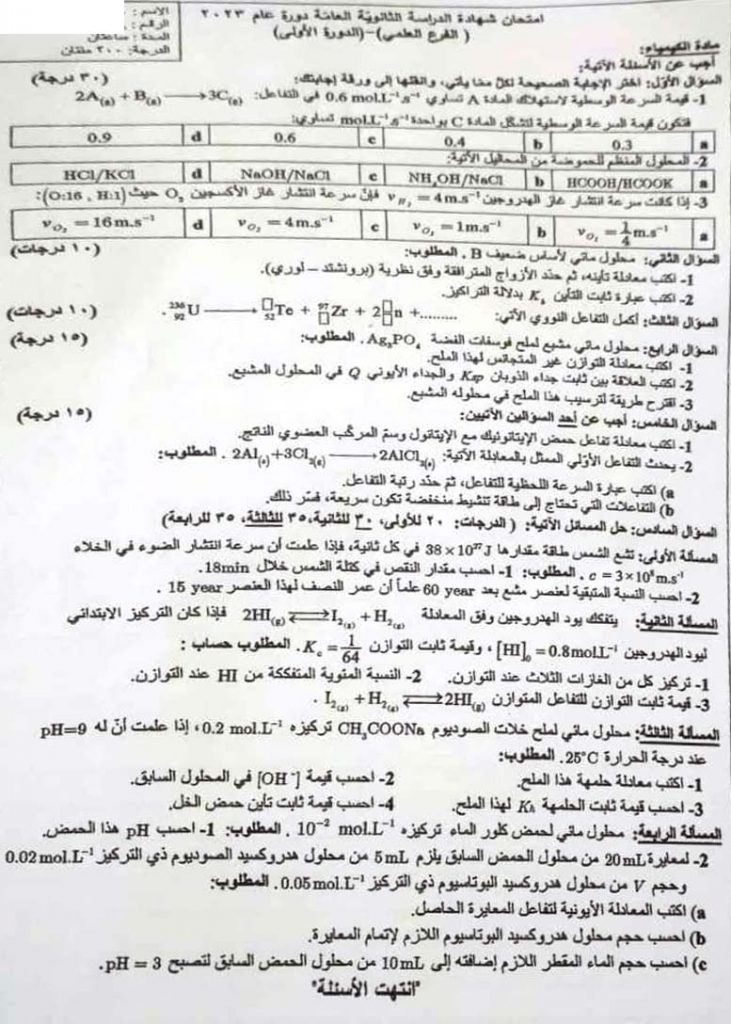 امتحان شهادة الدراسة الثانوية العامة دورة عام ٢٠٢٣
( الفرع العلمي)–(الدورة الأولى)
الاسم :
الرقم :
المدة : ساعتان
الدرجة: ٢٠٠ مئتان
مادة الكيمياء:
أجب عن الأسئلة الآتية:
السؤال الأول: اختر الإجابة الصحيحة لكل مما يأتي، وانقلها إلى ورقة إجابتك: (٣٠ درجة)
1- قيمة السرعة الوسطية لاستهلاك المادة A تساوي 0.6 mol.L⁻¹.s⁻¹ في التفاعل: 2A(g) + B(g) ⟶ 3C(g)
فتكون قيمة السرعة الوسطية لتشكل المادة C بواحدة mol.L⁻¹.s⁻¹ تساوي:
a 0.3 b 0.4 c 0.6 d 0.9
2- المحلول المنظم للحموضة من المحاليل الآتية:
a HCOOH/HCOOK b NH₄OH/NaCl c NaOH/NaCl d HCl/KCl
3- إذا كانت سرعة انتشار غاز الهدروجين v_H₂ = 4 m.s⁻¹ فإن سرعة انتشار غاز الأكسجين O₂ حيث (O:16 , H:1):
a v_O₂ = 1/4 m.s⁻¹ b v_O₂ = 1m.s⁻¹ c v_O₂ = 4m.s⁻¹ d v_O₂ = 16m.s⁻¹
السؤال الثاني: محلول مائي لأساس ضعيف B . المطلوب: (١٠ درجات)
1- اكتب معادلة تأينه، ثم حدد الأزواج المترافقة وفق نظرية (برونشتد – لوري).
2- اكتب عبارة ثابت التأين K_b بدلالة التراكيز.
السؤال الثالث: أكمل التفاعل النووي الآتي: ²³⁶₉₂U ⟶ □₅₂Te + ⁹⁷□Zr + 2□□n +......... . (١٠ درجات)
السؤال الرابع: محلول مائي مشبع لملح فوسفات الفضة Ag₃PO₄ . المطلوب: (١٥ درجة)
1- اكتب معادلة التوازن غير المتجانس لهذا الملح.
2- اكتب العلاقة بين ثابت جداء الذوبان Ksp والجداء الأيوني Q في المحلول المشبع.
3- اقترح طريقة لترسيب هذا الملح في محلوله المشبع.
السؤال الخامس: أجب عن أحد السؤالين الآتيين: (١٥ درجة)
1- اكتب معادلة تفاعل حمض الإيتانوئيك مع الإيتانول وسم المركب العضوي الناتج.
2- يحدث التفاعل الأولي الممثل بالمعادلة الآتية: 2Al(s)+3Cl₂(g) ⟶ 2AlCl₃(s) . المطلوب:
a) اكتب عبارة السرعة اللحظية للتفاعل، ثم حدد رتبة التفاعل.
b) التفاعلات التي تحتاج إلى طاقة تنشيط منخفضة تكون سريعة، فسر ذلك.
السؤال السادس: حل المسائل الآتية: ( الدرجات: ٢٠ للأولى، ٣٠ للثانية،٣٥ للثالثة، ٣٥ للرابعة)
المسألة الأولى: تشع الشمس طاقة مقدارها 38×10²⁷J في كل ثانية، فإذا علمت أن سرعة انتشار الضوء في الخلاء
c = 3×10⁸m.s⁻¹ . المطلوب: 1- احسب مقدار النقص في كتلة الشمس خلال 18min.
2- احسب النسبة المتبقية لعنصر مشع بعد 60 year علماً أن عمر النصف لهذا العنصر 15 year .
المسألة الثانية: يتفكك يود الهدروجين وفق المعادلة 2HI(g) ⇌ I₂(g) + H₂(g) فإذا كان التركيز الابتدائي
ليود الهدروجين [HI]₀ = 0.8mol.L⁻¹ ، وقيمة ثابت التوازن K_c = 1/64 . المطلوب حساب :
1- تركيز كل من الغازات الثلاث عند التوازن. 2- النسبة المئوية المتفككة من HI عند التوازن.
3- قيمة ثابت التوازن للتفاعل المتوازن I₂(g) + H₂(g) ⇌ 2HI(g) .
المسألة الثالثة: محلول مائي لملح خلات الصوديوم CH₃COONa تركيزه 0.2 mol.L⁻¹ ، إذا علمت أن له pH=9
عند درجة الحرارة 25°C. المطلوب:
1- اكتب معادلة حلمهة هذا الملح. 2- احسب قيمة [OH⁻] في المحلول السابق.
3- احسب قيمة ثابت الحلمهة K_h لهذا الملح. 4- احسب قيمة ثابت تأين حمض الخل.
المسألة الرابعة: محلول مائي لحمض كلور الماء تركيزه 10⁻² mol.L⁻¹ . المطلوب: 1- احسب pH هذا الحمض.
2- لمعايرة 20mL من محلول الحمض السابق يلزم 5mL من محلول هدروكسيد الصوديوم ذي التركيز 0.02mol.L⁻¹
وحجم V من محلول هدروكسيد البوتاسيوم ذي التركيز 0.05mol.L⁻¹. المطلوب:
a) اكتب المعادلة الأيونية لتفاعل المعايرة الحاصل.
b) احسب حجم محلول هدروكسيد البوتاسيوم اللازم لإتمام المعايرة.
c) احسب حجم الماء المقطر اللازم إضافته إلى 10mL من محلول الحمض السابق لتصبح pH = 3 .
"انتهت الأسئلة"